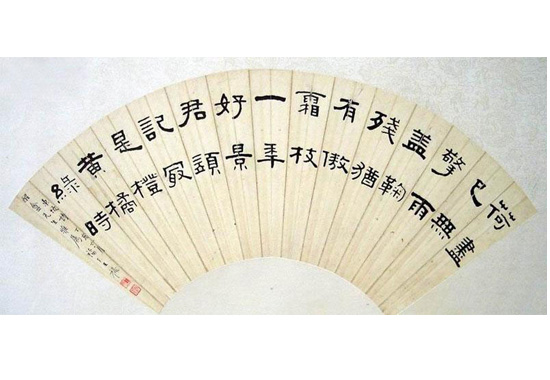 荷盡
已無
擎雨
盖鞠
残猶
有傲
霜枝
一年
好景
君須
記冣
是橙
黄橘
綠時